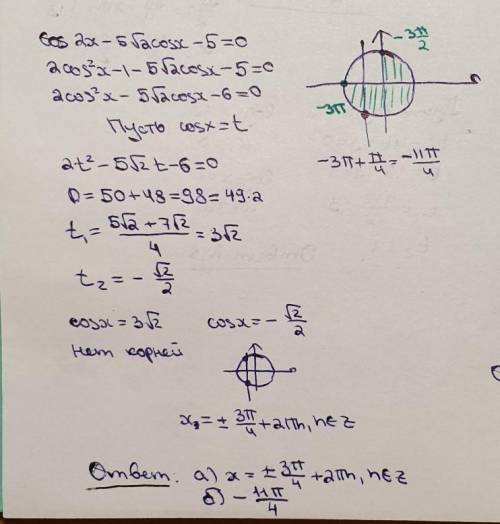 cos 2x - 5√2cosx - 5 = 0
2cos²x - 1 - 5√2cosx - 5 = 0
2cos²x - 5√2cosx - 6 = 0
Пусть cosx = t
2t² - 5√2 t - 6 = 0
D = 50 + 48 = 98 = 49·2
t₁ = (5√2 + 7√2)/4 = 3√2
t₂ = - √2/2
cosx = 3√2 cosx = - √2/2
нет корней
x = ± 3π/4 + 2πn, n∈Z
Ответ: а) x = ± 3π/4 + 2πn, n∈Z
б) - 11π/4
- 3π/2
-3π
-3π + π/4 = -11π/4